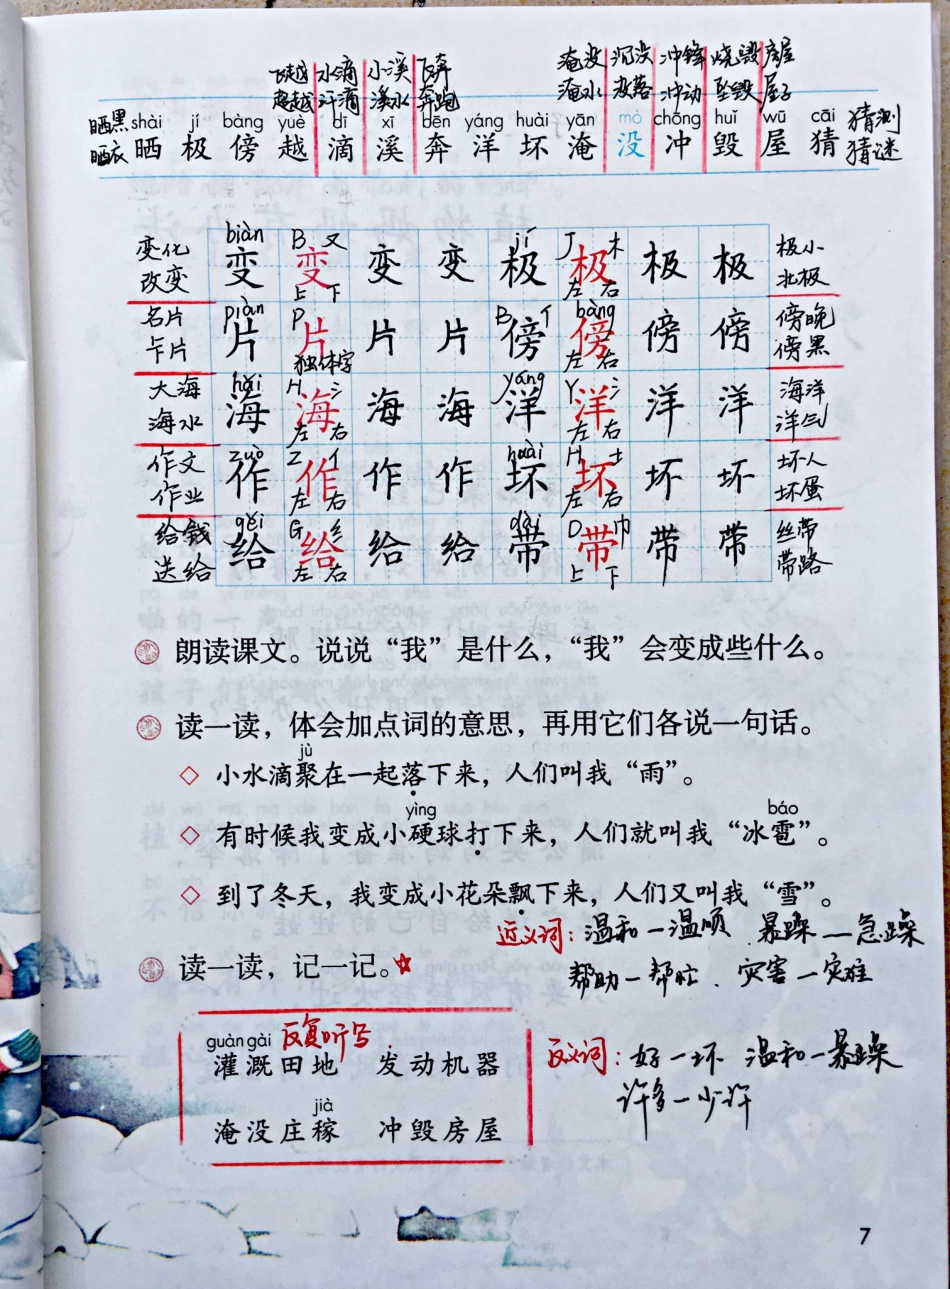 飞越 水滴 小溪 飞奔 淹没 沉没 冲锋 烧毁 房屋
超越 汗滴 溪水 奔跑 淹水 没落 冲动 坠毁 屋子
晒黑 shài jí bàng yuè dī xī bēn yáng huài yān mò chōng huǐ wū cāi 猜测
晒衣 晒 极 傍 越 滴 溪 奔 洋 坏 淹 没 冲 毁 屋 猜 猜谜
biàn B 又 jí J 木
变化 变 变 变 变 极 极 极 极 极小
改变 上 下 左 右 北极
piàn P B 亻 bàng
名片 片 片 片 片 傍 傍 傍 傍 傍晚
卡片 独体字 左 右 傍黑
hǎi H 氵 yáng Y 氵
大海 海 海 海 海 洋 洋 洋 洋 海洋
海水 左 右 左 右 洋气
zuò Z 亻 huài H 土
作文 作 作 作 作 坏 坏 坏 坏 坏人
作业 左 右 左 右 坏蛋
gěi G 纟 dài D 巾
给钱 给 给 给 给 带 带 带 带 丝带
送给 左 右 上 下 带路
朗读课文。说说“我”是什么，“我”会变成些什么。
读一读，体会加点词的意思，再用它们各说一句话。
jù
◇ 小水滴聚在一起落下来，人们叫我“雨”。
yìng báo
◇ 有时候我变成小硬球打下来，人们就叫我“冰雹”。
◇ 到了冬天，我变成小花朵飘下来，人们又叫我“雪”。
近义词：温和—温顺 暴躁—急躁
帮助—帮忙．灾害—灾难
读一读，记一记。
guàn gài 反复听写
灌溉田地 发动机器
jià
淹没庄稼 冲毁房屋
反义词：好—坏 温和—暴躁
许多—少许
7